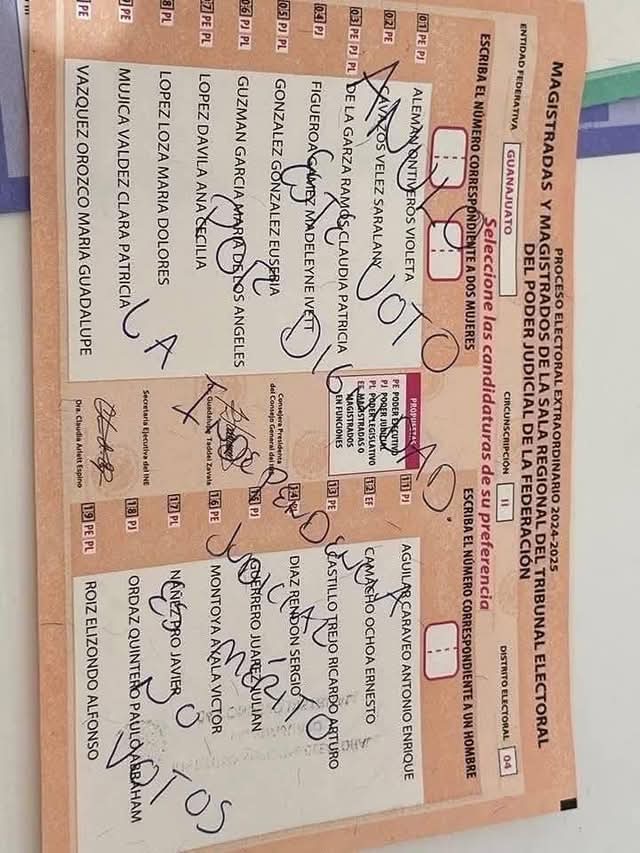 PROCESO ELECTORAL EXTRAORDINARIO 2024-2025
MAGISTRADAS Y MAGISTRADOS DE LA SALA REGIONAL DEL TRIBUNAL ELECTORAL
DEL PODER JUDICIAL DE LA FEDERACIÓN
ENTIDAD FEDERATIVA GUANAJUATO CIRCUNSCRIPCIÓN II DISTRITO ELECTORAL 04
Seleccione las candidaturas de su preferencia
ESCRIBA EL NÚMERO CORRESPONDIENTE A DOS MUJERES
01 PE PJ ALEMAN ONTIVEROS VIOLETA
02 PE CAVAZOS VELEZ SARALANY
03 PE PJ PL DE LA GARZA RAMOS CLAUDIA PATRICIA
04 PJ FIGUEROA MADELEYNE IVETT
05 PJ PL GONZALEZ GONZALEZ
06 PJ PL GUZMAN GARCIA MARIA DE LOS ANGELES
07 PE PL LOPEZ DAVILA ANA CECILIA
PL LOPEZ LOZA MARIA DOLORES
PE MUJICA VALDEZ CLARA PATRICIA
PE VAZQUEZ OROZCO MARIA GUADALUPE
PROPUESTAS
PE PODER EJECUTIVO
PJ PODER JUDICIAL
PL PODER LEGISLATIVO
EF MAGISTRADAS O
MAGISTRADOS
EN FUNCIONES
Consejera Presidenta
del Consejo General del INE
Lic. Guadalupe Taddei Zavala
Secretaria Ejecutiva del INE
Dra. Claudia Arlett Espino
ESCRIBA EL NÚMERO CORRESPONDIENTE A UN HOMBRE
11 PJ AGUILAR CARAVEO ANTONIO ENRIQUE
12 EF CAMACHO OCHOA ERNESTO
13 PE CASTILLO TREJO RICARDO ARTURO
14 PL DIAZ RENDON SERGIO
15 PJ GUERRERO JUAREZ JULIAN
16 PE MONTOYA AYALA VICTOR
17 PL JAVIER
18 PJ ORDAZ QUINTERO PAULO ABRAHAM
19 PE PL ROIZ ELIZONDO ALFONSO
ANULO
ESTE VOTO
POR
LA
JUDICIAL
ES MÉRITO
NO VOTOS